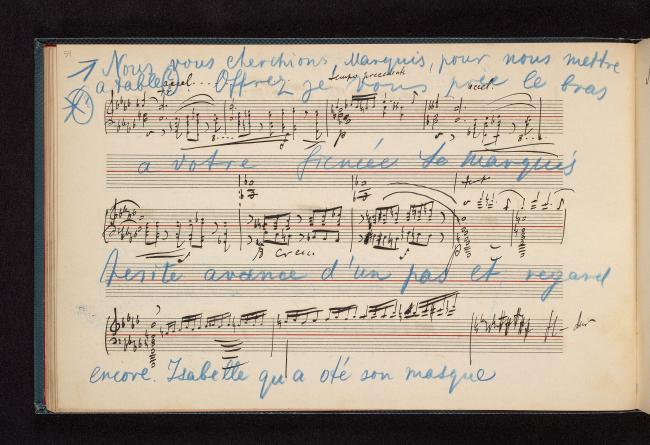 54
Nous vous cherchions, Marquis, pour nous mettre
a table. Offrez je vous prie le bras
Tempo precedente
a votre fiancée Le marquis
hesite avance d'un pas et regard
encore. Isabelle qu a oté son masque